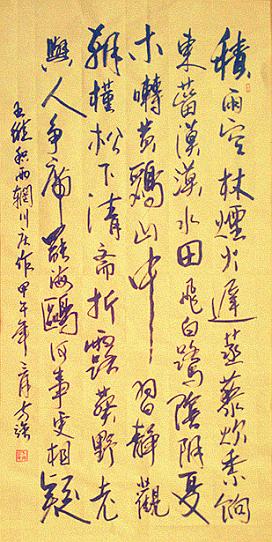 積雨空林煙火遲蒸藜炊黍餉
東菑漠漠水田飛白鷺陰陰夏
木囀黃鸝山中習靜觀
朝槿松下清齋折露葵野老
與人爭席罷海鷗何事更相疑
王維积雨輞川庄作甲午年